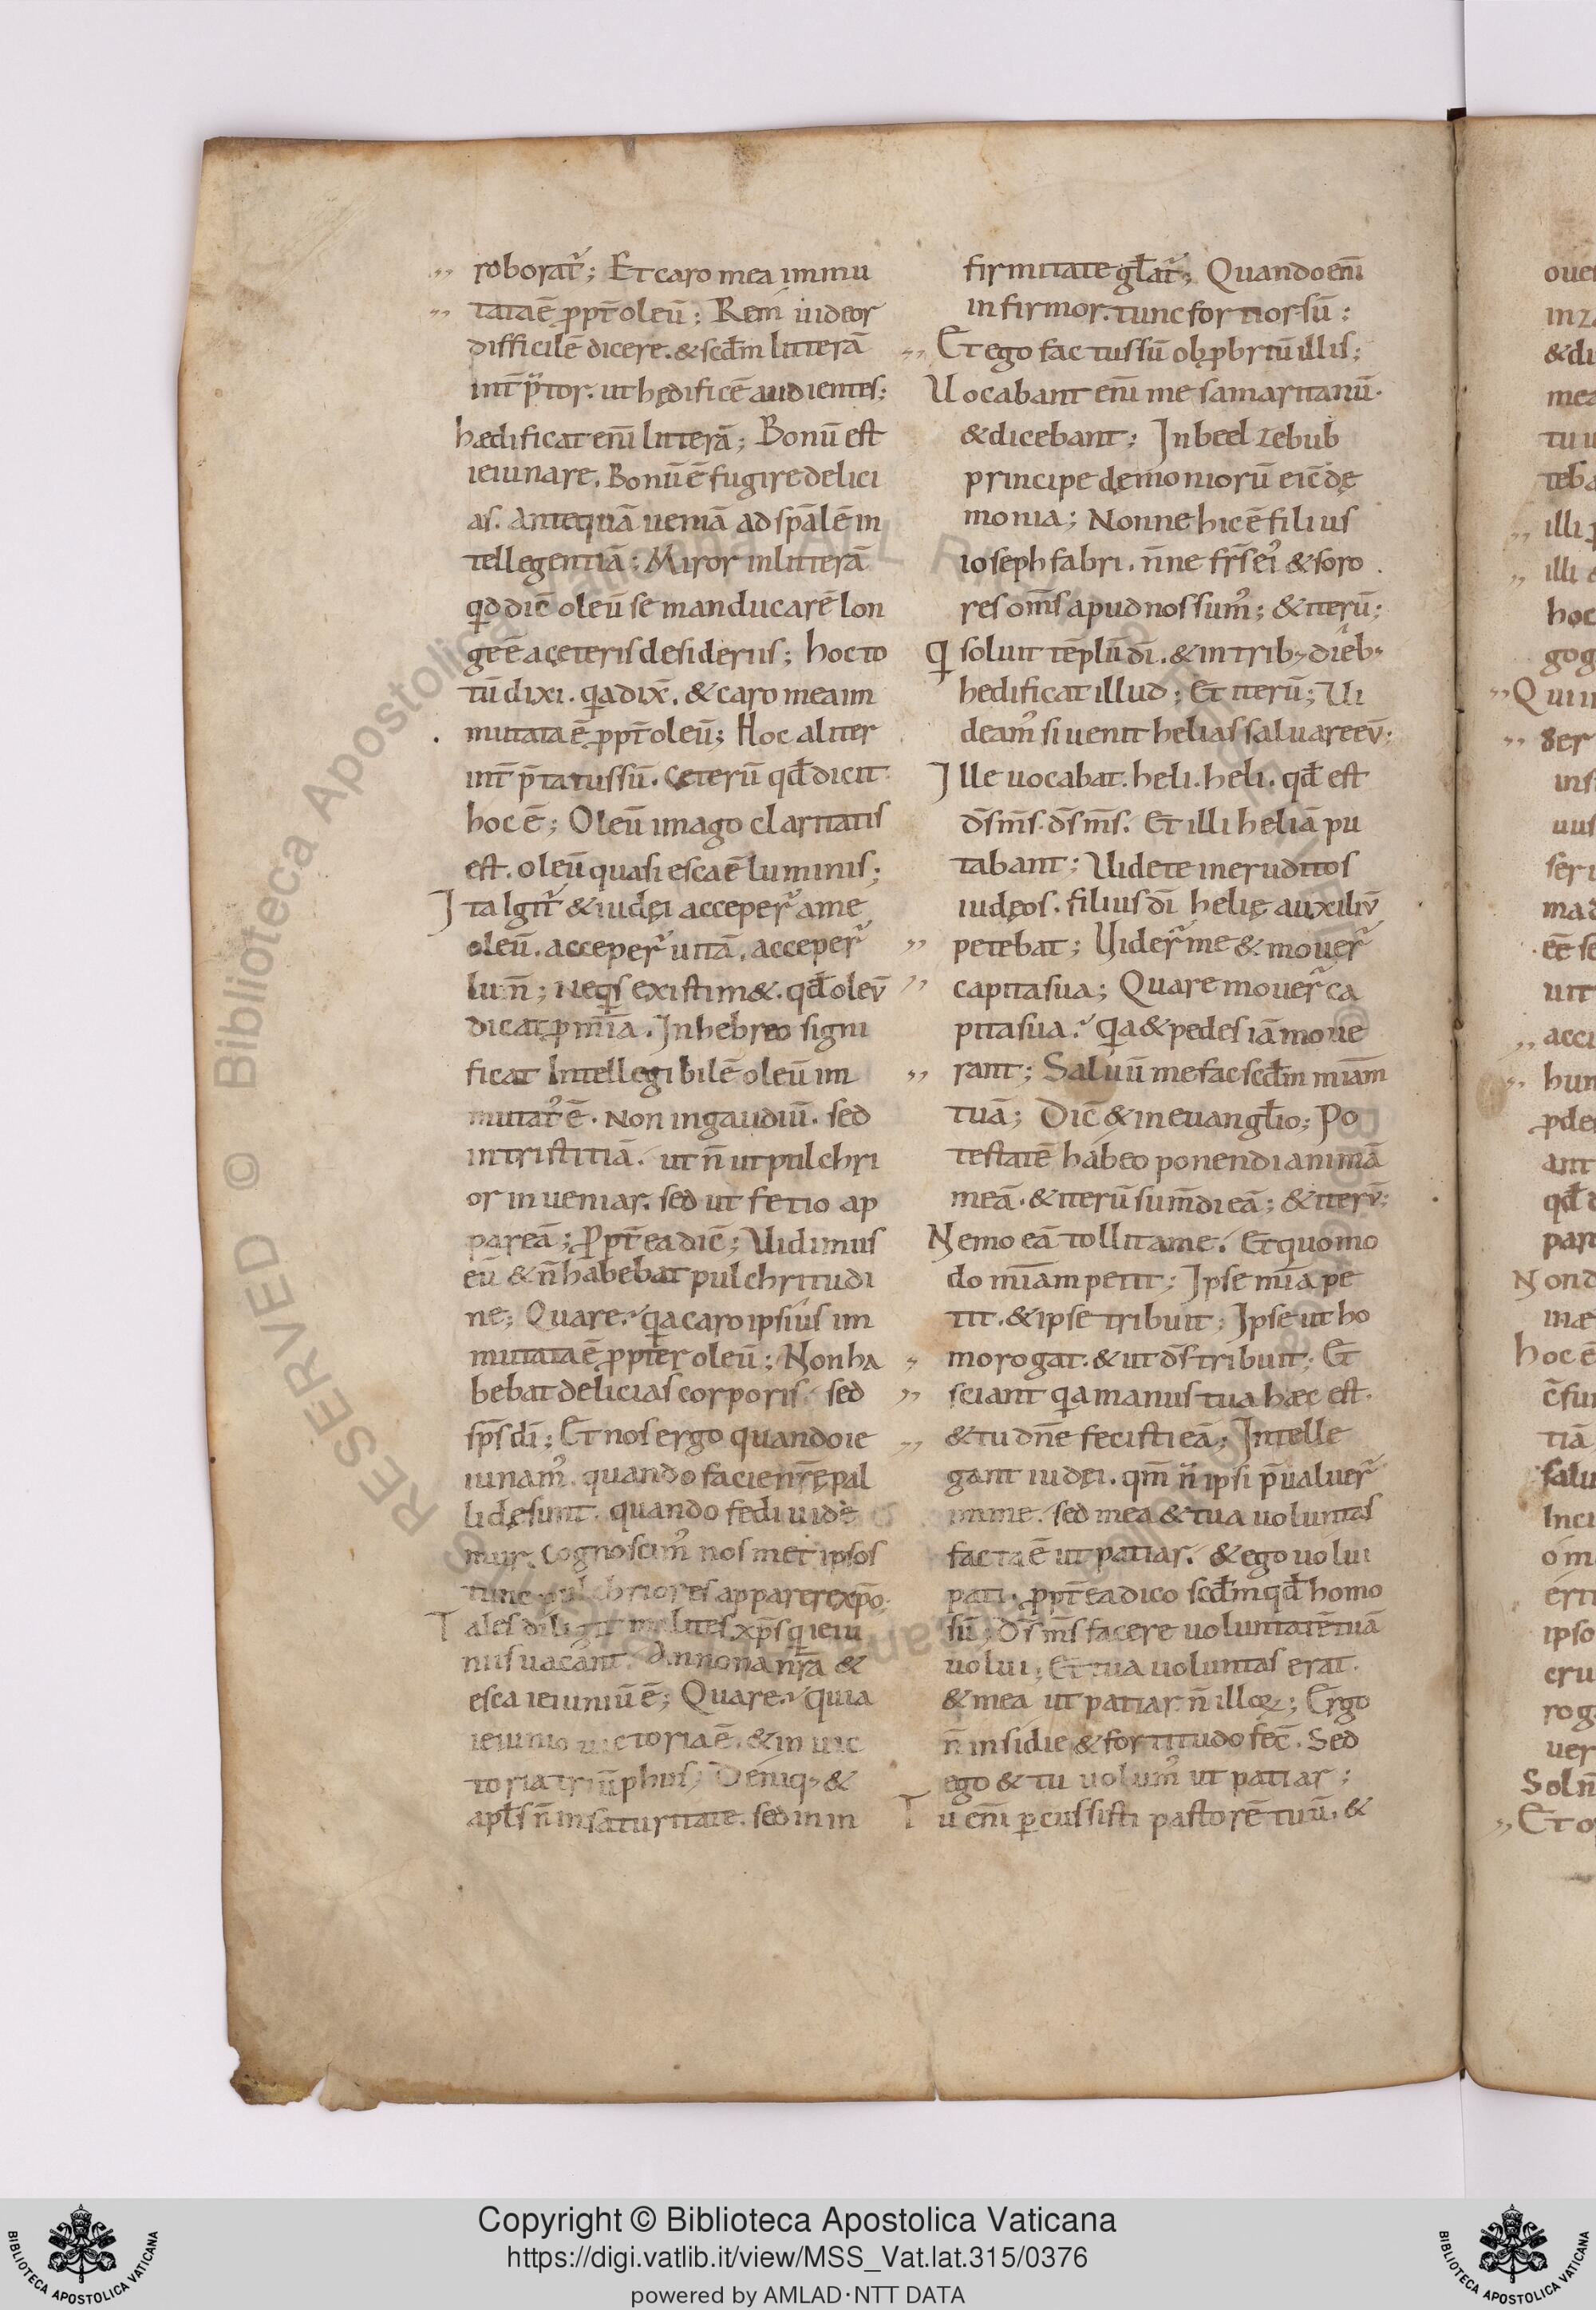 roborat᷑; Et caro mea immu
tata ē ꝓpt̄ oleū; Rem uideor
difficilē dicere. & scd̄m litterā
int̄p̄tor. ut hędificē audientes;
hædificat enī litterā; Bonū est
ieiunare. Bonū ē fugire delici
as. Antequā ueniā ad sp̄alē in
tellegentiā; Miror in litterā
qd dic̄ oleū se manducarē lon
ge ē a cęteris desideriis; hoc to
tū dixi. qa dix̄. & caro mea im
mutata ē ꝓpt̄ oleū; Hoc aliter
int̄p̄tatus sū. Cęterū qd̄ dicit
hoc ē; Oleū imago claritatis
est. oleū quasi esca ē luminis;
Ita igit᷑ & iudęi acceper̄ a me
oleū. acceper̄ uitā. acceper̄
lum̄; Neqs existim&. qd̄ oleū
dicat ꝓ mīa. In hebreo signi
ficat Intellegibilē oleū im
mutat᷑ ē. Non in gaudiū. sed
in tristitiā. ut n̄ ut pulchri
or inueniar. sed ut fetio ap
pareā; Ꝓpt̄ea dic̄; Uidimus
eū & n̄ habebat pulchritudi
ne; Quare? qa caro ipsius im
mutata ē ꝓpter oleū; Non ha
bebat delicias corporis sed
sp̄s dī; Et nos ergo quando ie
iunam᷒. quando facie nr̄ę pal
lidę sunt. quando fedi uidē
mur. Cognoscim᷒ nosmet ipsos
tunc pulchriores apparere xp̄o.
Tales diligit milites xp̄s q ieiu
niis uacant. Annona nr̄a &
esca ieiuniū ē; Quare? quia
ieiunio uictoria ē. & in uic
toria triūphus; Deniq; &
apl̄s n̄ in saturitate. sed in in
firmitate gl̄at᷑; Quando enī
infirmor. tunc fortior sū:
Et ego factus sū obꝓbriū illis;
Uocabant enī me samaritanū.
& dicebant; In beelzebub
principe dęmoniorū eic̄ dę
monia; Nonne hic ē filius
ioseph fabri. n̄ne fr̄s ei᷒ & soro
res om̄s apud nos sum᷒; & iterū;
Q soluit tēplū dī. & in trib; dieb;
hedificat illud; Et iterū; Ui
deam᷒ si uenit helias saluare eū;
Ille uocabat. heli. heli. qd̄ est
ds̄ ms̄. ds̄ ms̄. Et illi heliā pu
tabant; Uidete ineruditos
iudęos. filius dī helię auxiliū
petebat; Uider̄ me & mouer̄
capita sua; Quare mouer̄ ca
pita sua? qa & pedes iā moue
rant; Saluū me fac scd̄m miam̄
tuā; Dic̄ & in euangl̄io; Po
testatē habeo ponendi animā
meā. & iterū sum̄di eā; & iterū;
Nemo eā tollit a me. Et quomo
do mīam petit; Ipse mīa pe
tit. & ipse tribuit; Ipse ut ho
mo rogat. & ut ds̄ tribuit; Et
sciant qa manus tua hæc est.
& tu dn̄e fecisti eā; Intelle
gant iudei. qm̄ n̄ ipsi p̄ualuer̄
in me. sed mea & tua uoluntas
facta ē ut patiar. & ego uolui
pati. ꝓpt̄ea dico scd̄m qd̄ homo
sū; Ds̄ ms̄ facere uoluntatē tuā
uolui; Et tua uoluntas erat.
& mea ut patiar n̄ illoꝝ; Ergo
n̄ insidie & fortitudo fec̄. Sed
ego & tu uolum᷒ ut patiar;
Tu enī ꝑcussisti pastorē tuū. &
oue
in za
& di
mea
tu u
teba
illi
illi
hoc
gog
Qui i
ser
ins
uus
seri
mad
ēē se
uit
acci
hun
ant
qd̄
par
Non
hoc ē
tiā
salu
Inci
ipso
cru
rog
uer
Soln̄
Et o
RESERVED © Biblioteca Apostolica Vaticana. ALL RIGHTS RESERVED © Biblioteca Apostolica Vaticana. ALL RIGHTS
BIBLIOTECA APOSTOLICA VATICANA
Copyright © Biblioteca Apostolica Vaticana
https://digi.vatlib.it/view/MSS_Vat.lat.315/0376
powered by AMLAD·NTT DATA
BIBLIOTECA APOSTOLICA VATICANA